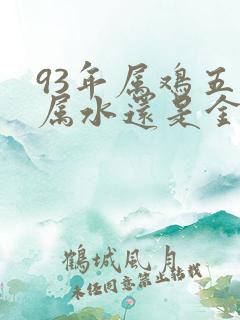 93年属鸡五
属水還是金
鶴城風月
未经同意禁止转载